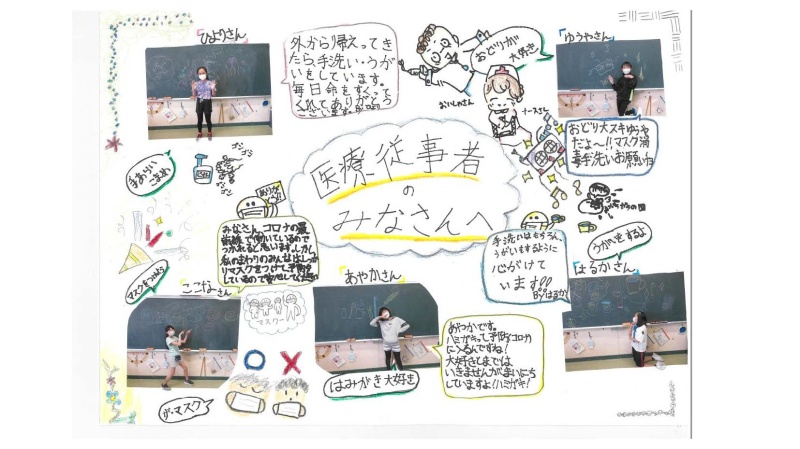 ひよりさん
外から帰えってき
たら手洗い・うが
いをしています。
毎日命をすくって
くれてありがとう
おどりが
大好き
おいしゃさん
ナースさん
ゆうやさん
おどり大スキゆうや
だよ〜!!マスク消
毒手洗いお願いね
手あらい
こまめ
医療従事者
の
みなさんへ
みなさん、コロナの最
前線で働いているので
つかれると思います。しかし、
私のまわりのみんなはしっか
りマスクをつけて予防を
しているので安心してください
マスクをつけよう
手洗いはもちろん、
うがいもするように
心がけて
います!!
Byはるか
うがいもするよ
ここなさん
あやかさん
はるかさん
マスクー
はみがき大好き
あやかです。
ハミガキって予防(コロナ)
に入るんですね!
大好きとまでは
いきませんがまいにち
していますよ!ハミガキ!